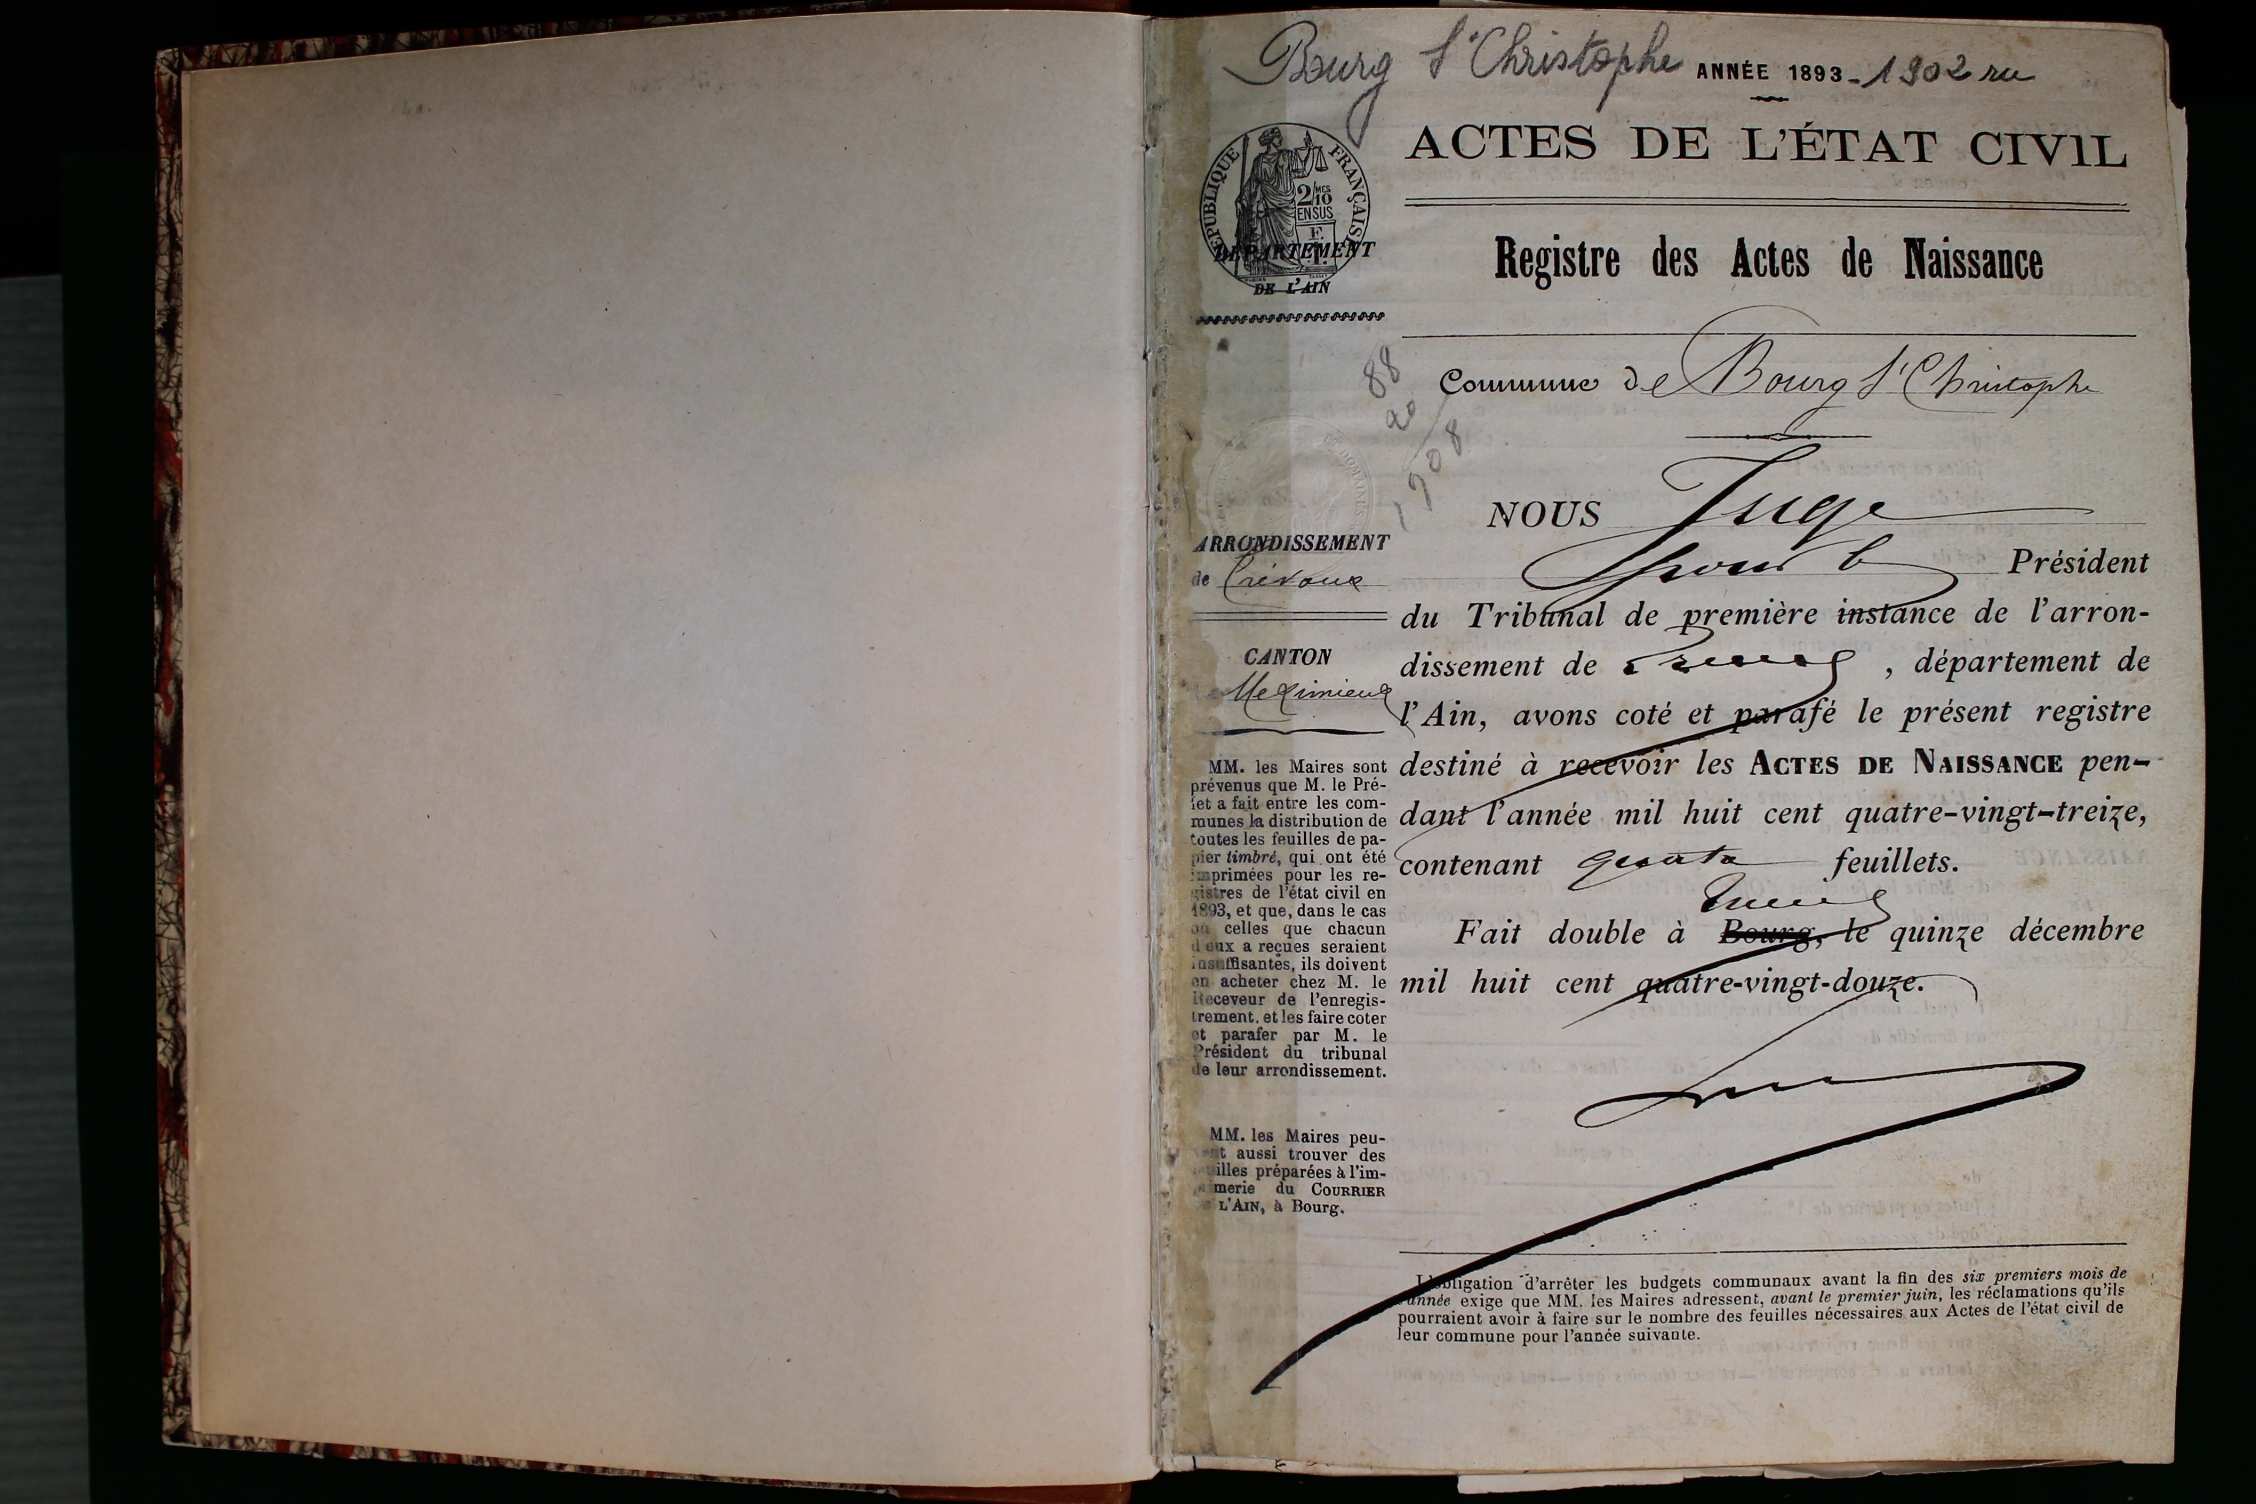 Bourg St Christophe ANNÉE 1893 - 1902 nu
ACTES DE L'ÉTAT CIVIL
RÉPUBLIQUE FRANÇAISE
2/10 MES
EN SUS
DÉPARTEMENT
DE L'AIN
Registre des Actes de Naissance
Commune de Bourg St Christophe
88
20
1908
NOUS Juge
pour le Président
du Tribunal de première instance de l'arron-
dissement de Trévoux, département de
l'Ain, avons coté et parafé le présent registre
destiné à recevoir les ACTES DE NAISSANCE pen-
dant l'année mil huit cent quatre-vingt-treize,
contenant quatre feuillets.
Trévoux
Fait double à Bourg, le quinze décembre
mil huit cent quatre-vingt-douze.
ARRONDISSEMENT
de Trévoux
CANTON
Meximieux
MM. les Maires sont
prévenus que M. le Pré-
fet a fait entre les com-
munes la distribution de
toutes les feuilles de pa-
pier timbré, qui ont été
imprimées pour les re-
gistres de l'état civil en
1893, et que, dans le cas
où celles que chacun
d'eux a reçues seraient
insuffisantes, ils doivent
en acheter chez M. le
Receveur de l'enregis-
trement, et les faire coter
et parafer par M. le
Président du tribunal
de leur arrondissement.
MM. les Maires peu-
vent aussi trouver des
feuilles préparées à l'im-
primerie du COURRIER
DE L'AIN, à Bourg.
L'obligation d'arrêter les budgets communaux avant la fin des six premiers mois de
l'année exige que MM. les Maires adressent, avant le premier juin, les réclamations qu'ils
pourraient avoir à faire sur le nombre des feuilles nécessaires aux Actes de l'état civil de
leur commune pour l'année suivante.